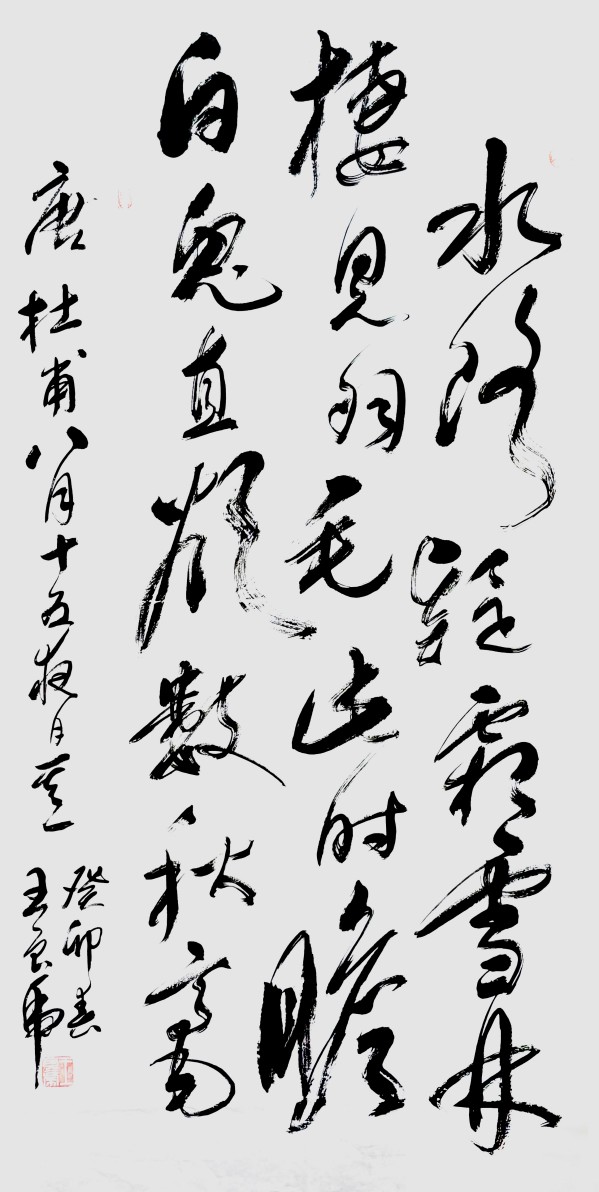 水路疑霜雪林
棲見羽毛此时瞻
白兔直欲數秋毫
唐杜甫八月十五夜月其一
癸卯春
王